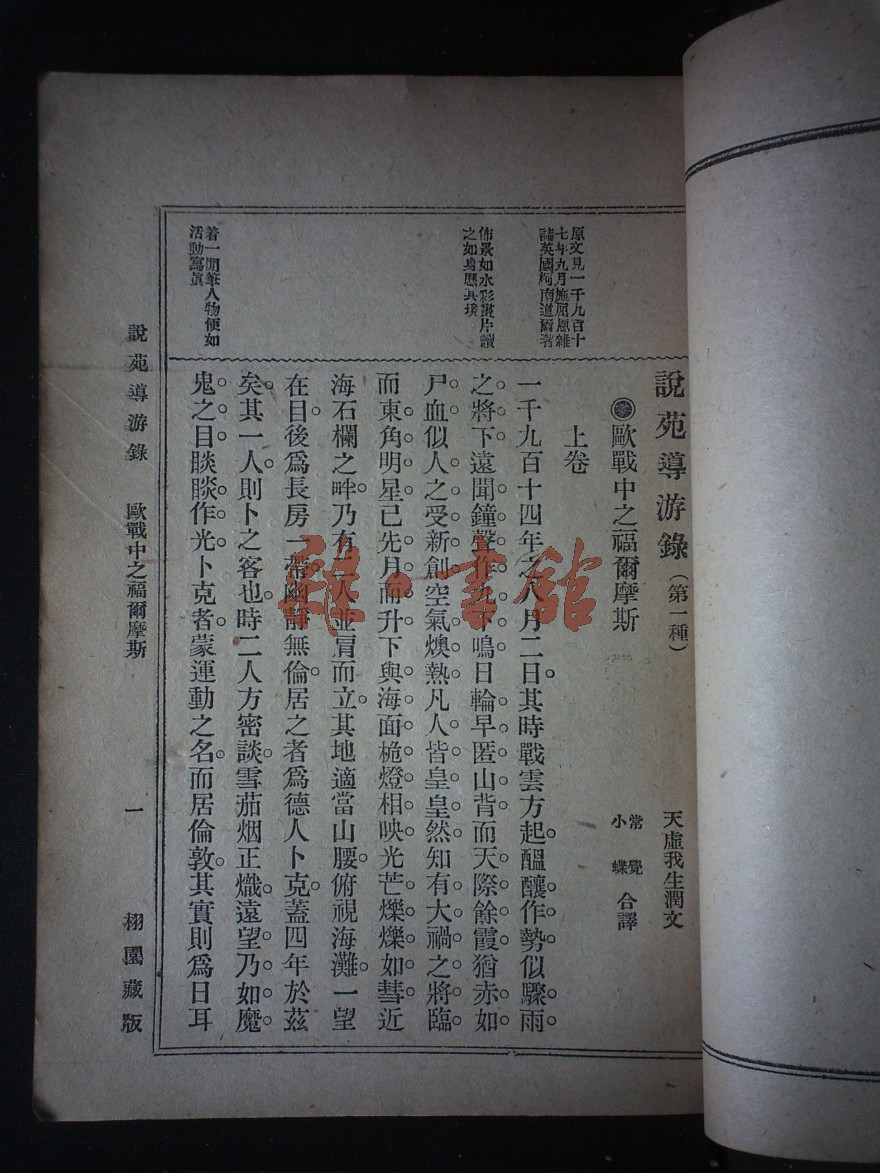 說苑導游錄（第一種）
天虛我生潤文
◉歐戰中之福爾摩斯
常覺
小蝶
合譯
上卷
原文見一千九百十
七年九月施屈恩雜
誌英國柯南道爾著
佈景如水彩畫片讀
之如身歷其境
着一閒筆人物便如
活動寫眞
一千九百十四年之八月二日。其時戰雲方起。醞釀作勢似驟雨
之將下。遠聞鐘聲作九下鳴。日輪早匿山背而天際餘霞猶赤如
尸血似人之受新創空氣燠熱凡人皆皇皇然知有大禍之將臨。
而東角明星已先月而升下與海面桅燈相映光芒爍爍如彗。近
海石欄之畔。乃有二人並肩而立。其地適當山腰。俯視海灘。一望
在目。後爲長房一帶幽靜無倫。居之者爲德人卜克。蓋四年於茲
矣。其一人則卜之客也。時二人方密談。雪茄烟正熾。遠望乃如魔
鬼之目睒睒作光。卜克者。蒙運動之名。而居倫敦。其實則爲日耳
說苑導游錄　歐戰中之福爾摩斯　一　栩園藏版
雅書館